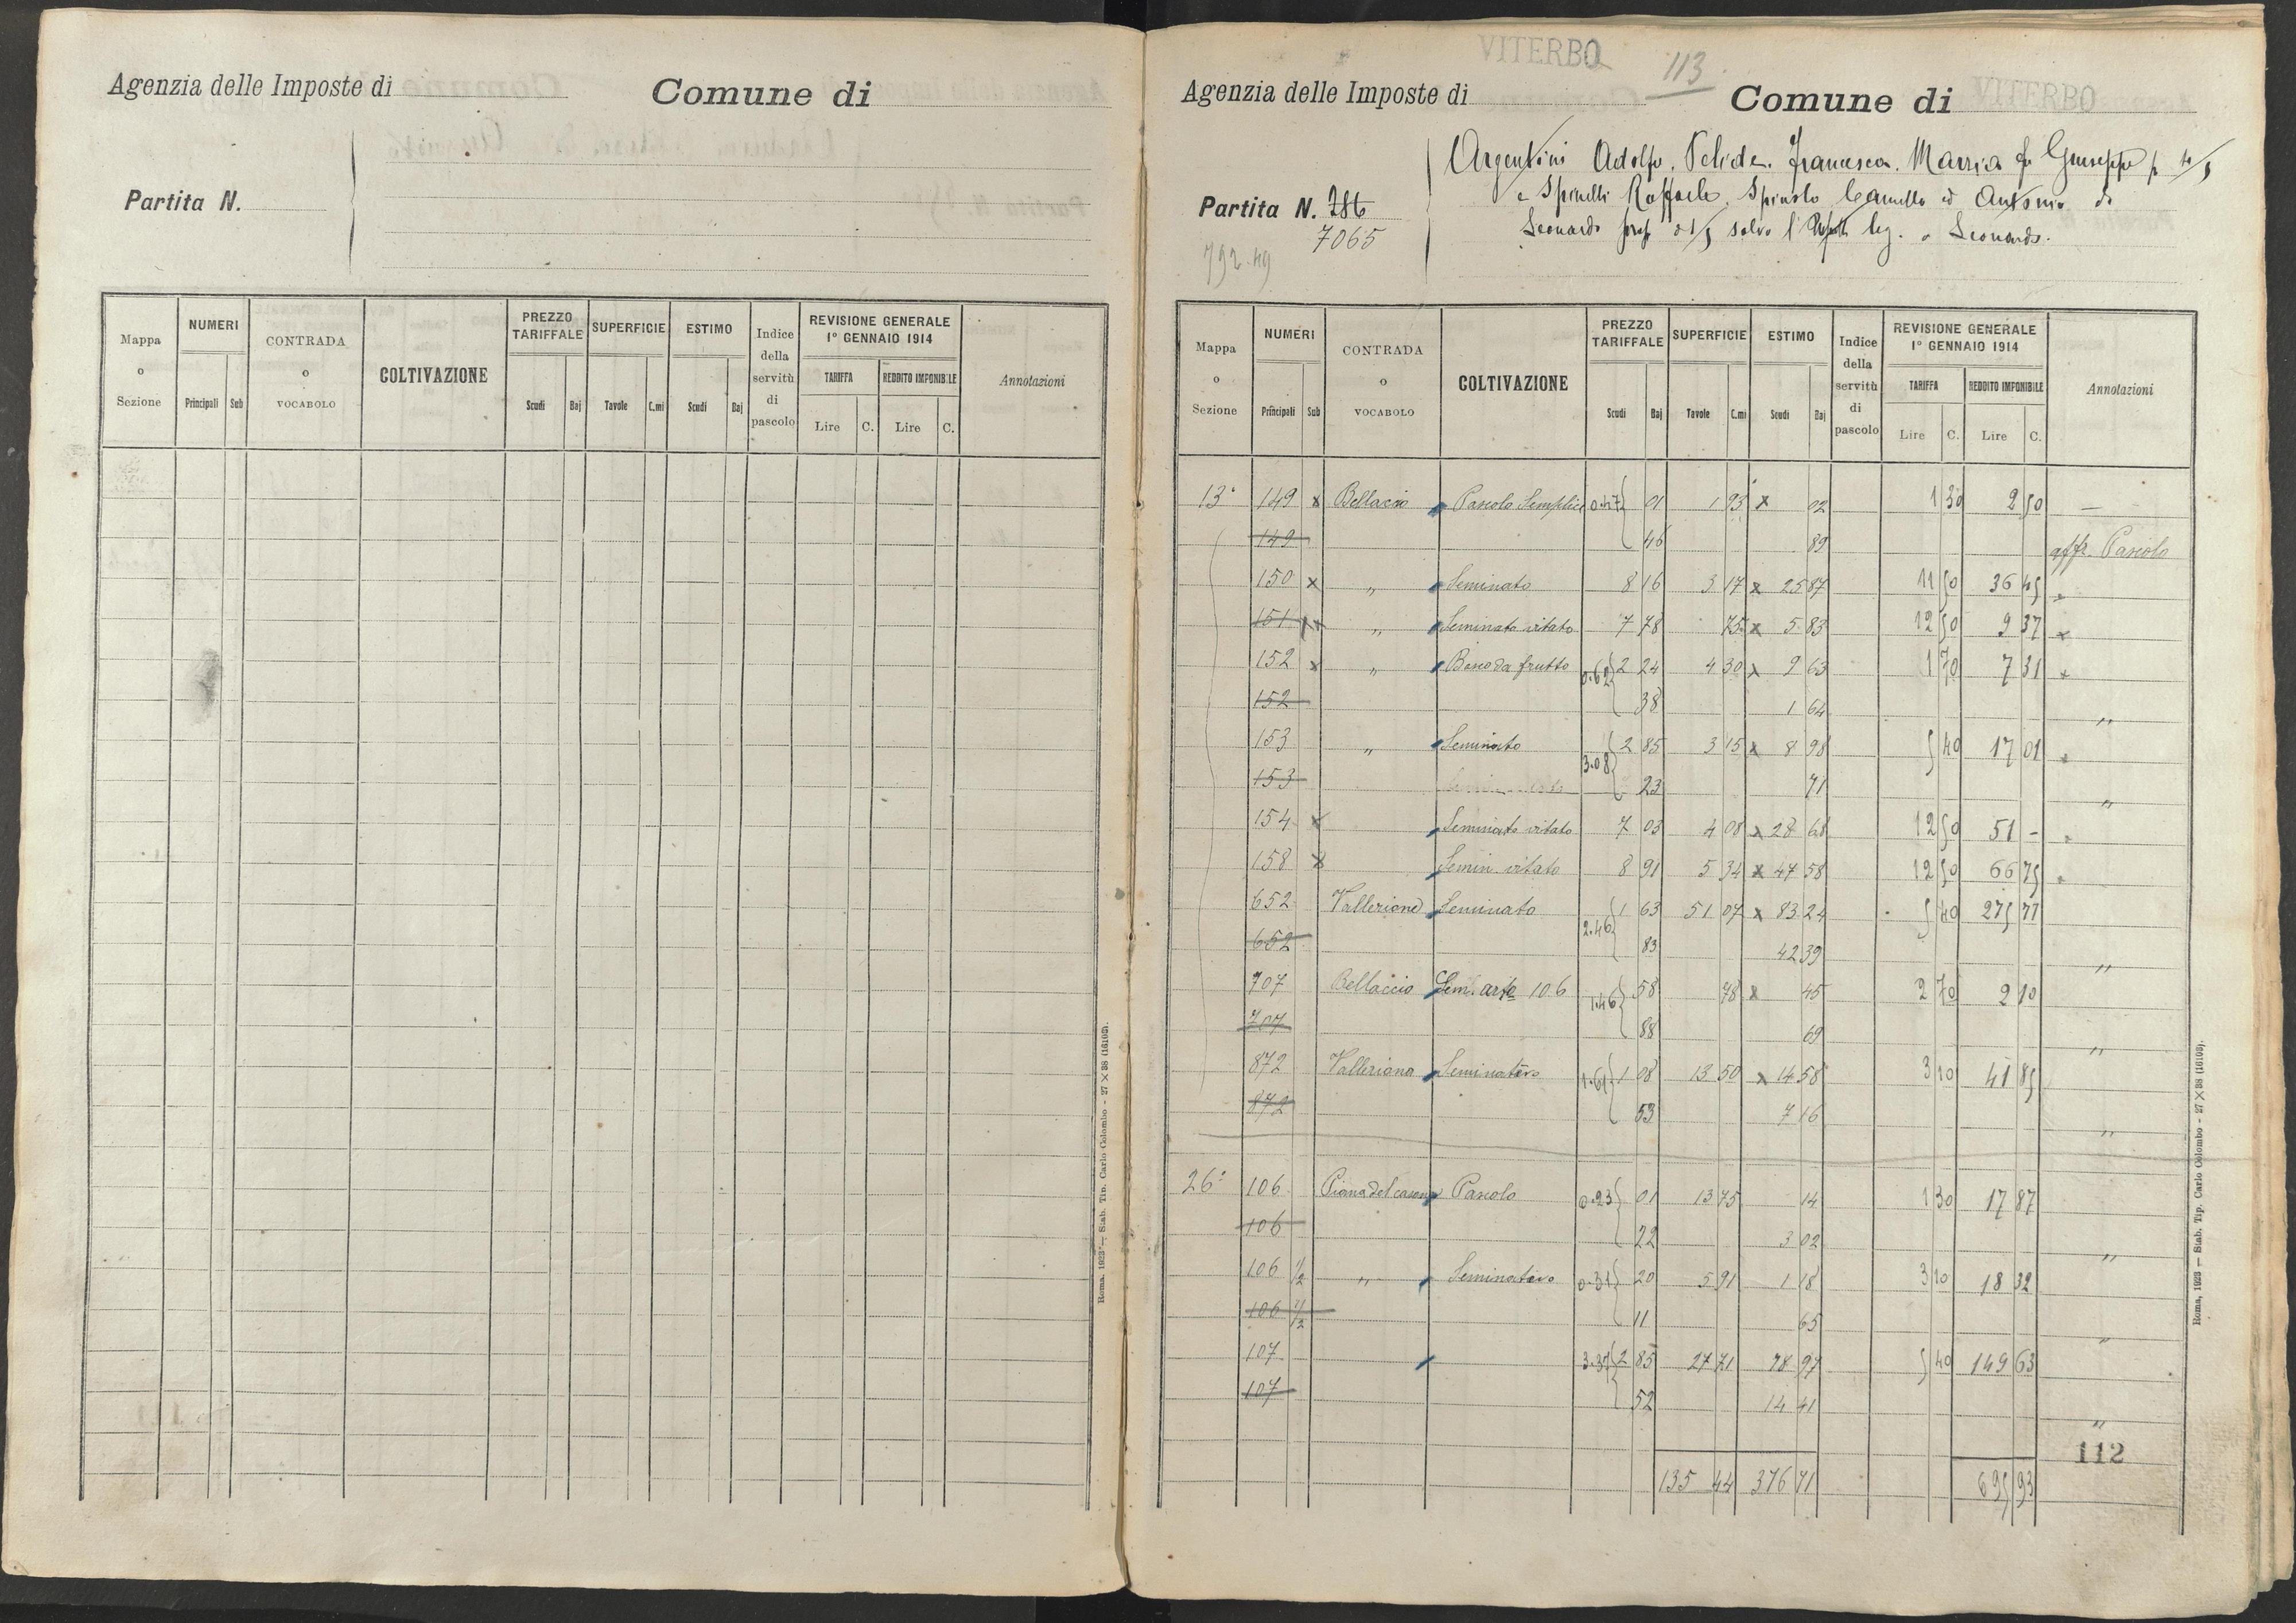 Agenzia delle Imposte di Comune di
Partita N.
Mappa o Sezione
NUMERI
Principali Sub
CONTRADA o VOCABOLO
COLTIVAZIONE
PREZZO TARIFFALE
Scudi Baj
SUPERFICIE
Tavole C.mi
ESTIMO
Scudi Baj
Indice della servitù di pascolo
REVISIONE GENERALE 1° GENNAIO 1914
TARIFFA
Lire C.
REDDITO IMPONIBILE
Lire C.
Annotazioni
Roma, 1923 — Stab. Tip. Carlo Colombo - 27 X 38 (16103).
VITERBO 113
Agenzia delle Imposte di Comune di VITERBO
Argentini Adolfo, Felide, Francesca, Marria fu Giuseppe p 4/5
e Spinelli Raffaele, Spinolo Camillo ed Antonio di
Leonardo prop 01/5 salvo l' leg. a Leonardo.
Partita N. 786
7065
792.49
Mappa o Sezione
NUMERI
Principali Sub
CONTRADA o VOCABOLO
COLTIVAZIONE
PREZZO TARIFFALE
Scudi Baj
SUPERFICIE
Tavole C.mi
ESTIMO
Scudi Baj
Indice della servitù di pascolo
REVISIONE GENERALE 1° GENNAIO 1914
TARIFFA
Lire C.
REDDITO IMPONIBILE
Lire C.
Annotazioni
13° 149 x Bellaccio Pascolo Semplice 0.47 01 1 93 x 02 1 30 2 50 —
149 46 89 affr. Pascolo
150 x " Seminato 8 16 3 17 x 25 87 11 50 36 45 "
151 x " Seminato vitato 7 78 75 x 5 83 12 50 9 37 "
152 x " Bosco da frutto 0.62 2 24 4 30 x 9 63 1 70 7 31 "
152 38 1 64 "
153 " Seminato 3.08 2 85 3 15 x 8 98 5 40 17 01 "
153 23 71 "
154 x Seminato vitato 7 03 4 08 x 28 68 12 50 51 - "
158 x Semin. vitato 8 91 5 34 x 47 58 12 50 66 75 "
652 Vallerione Seminato 2.46 1 63 51 07 x 83 24 5 40 275 77
652 83 42 39 "
707 Bellaccio Sem. arto 106 1.46 58 78 x 45 2 70 2 10
707 88 69 "
872 Valleriana Seminativo 1.61 1 08 13 50 x 14 58 3 10 41 85
872 53 7 16 "
26° 106 Piana del casone Pascolo 0.23 01 13 75 14 1 30 17 87
106 22 3 02 "
106 1/2 " Seminativo 0.31 20 5 91 1 18 3 10 18 32
106 1/2 11 65 "
107 3.37 2 85 27 71 78 97 5 40 149 63
107 52 14 41 "
112
135 44 376 71 695 93
Roma, 1923 — Stab. Tip. Carlo Colombo - 27 X 38 (16103).